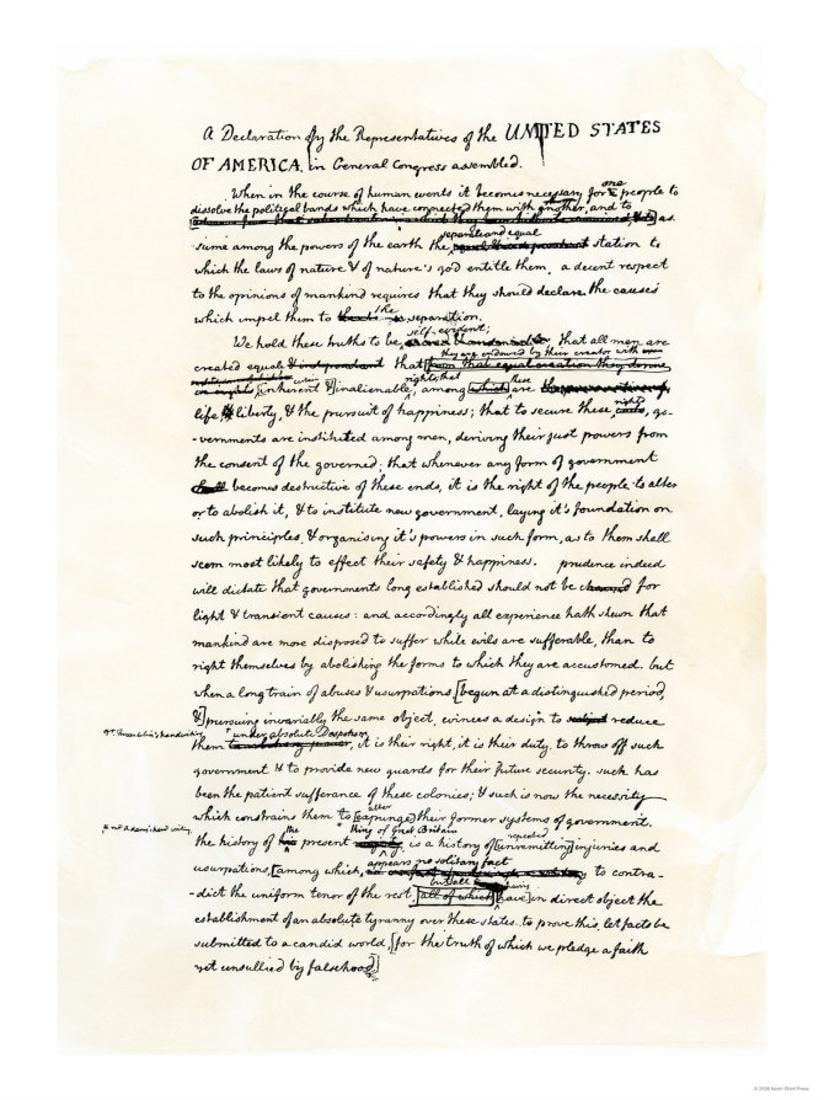 A Declaration by the Representatives of the UNITED STATES
OF AMERICA, in General Congress assembled.
When in the course of human events it becomes necessary for one people to
dissolve the political bands which have connected them with another, and to
as-
separate and equal
sume among the powers of the earth the station to
which the laws of nature & of nature's god entitle them, a decent respect
to the opinions of mankind requires that they should declare the causes
the
which impel them to separation.
self-evident;
We hold these truths to be that all men are
they are endowed by their creator with
created equal that [from that equal creation they derive
certain rights; that these
[inherent &] inalienable, among which are
rights
life & liberty, & the pursuit of happiness; that to secure these, go-
-vernments are instituted among men, deriving their just powers from
the consent of the governed; that whenever any form of government
becomes destructive of these ends, it is the right of the people to alter
or to abolish it, & to institute new government, laying it's foundation on
such principles, & organising it's powers in such form, as to them shall
seem most likely to effect their safety & happiness. prudence indeed
will dictate that governments long established should not be changed for
light & transient causes: and accordingly all experience hath shewn that
mankind are more disposed to suffer while evils are sufferable, than to
right themselves by abolishing the forms to which they are accustomed. but
when a long train of abuses & usurpations [begun at a distinguished period,
&] pursuing invariably the same object, evinces a design to reduce
Franklin's handwriting * under absolute Despotism
them, it is their right, it is their duty, to throw off such
government & to provide new guards for their future security. such has
been the patient sufferance of these colonies; & such is now the necessity
alter
which constrains them to [expunge] their former systems of government.
* mr Adams' hand writing the * king of Great Britain repeated
the history of his present majesty, is a history of [unremitting] injuries and
appears no solitary fact
usurpations, [among which, to contra-
but all having
-dict the uniform tenor of the rest, all of which [have] in direct object the
establishment of an absolute tyranny over these states. to prove this, let facts be
submitted to a candid world, [for the truth of which we pledge a faith
yet unsullied by falsehood]
© 2008 North Wind Press